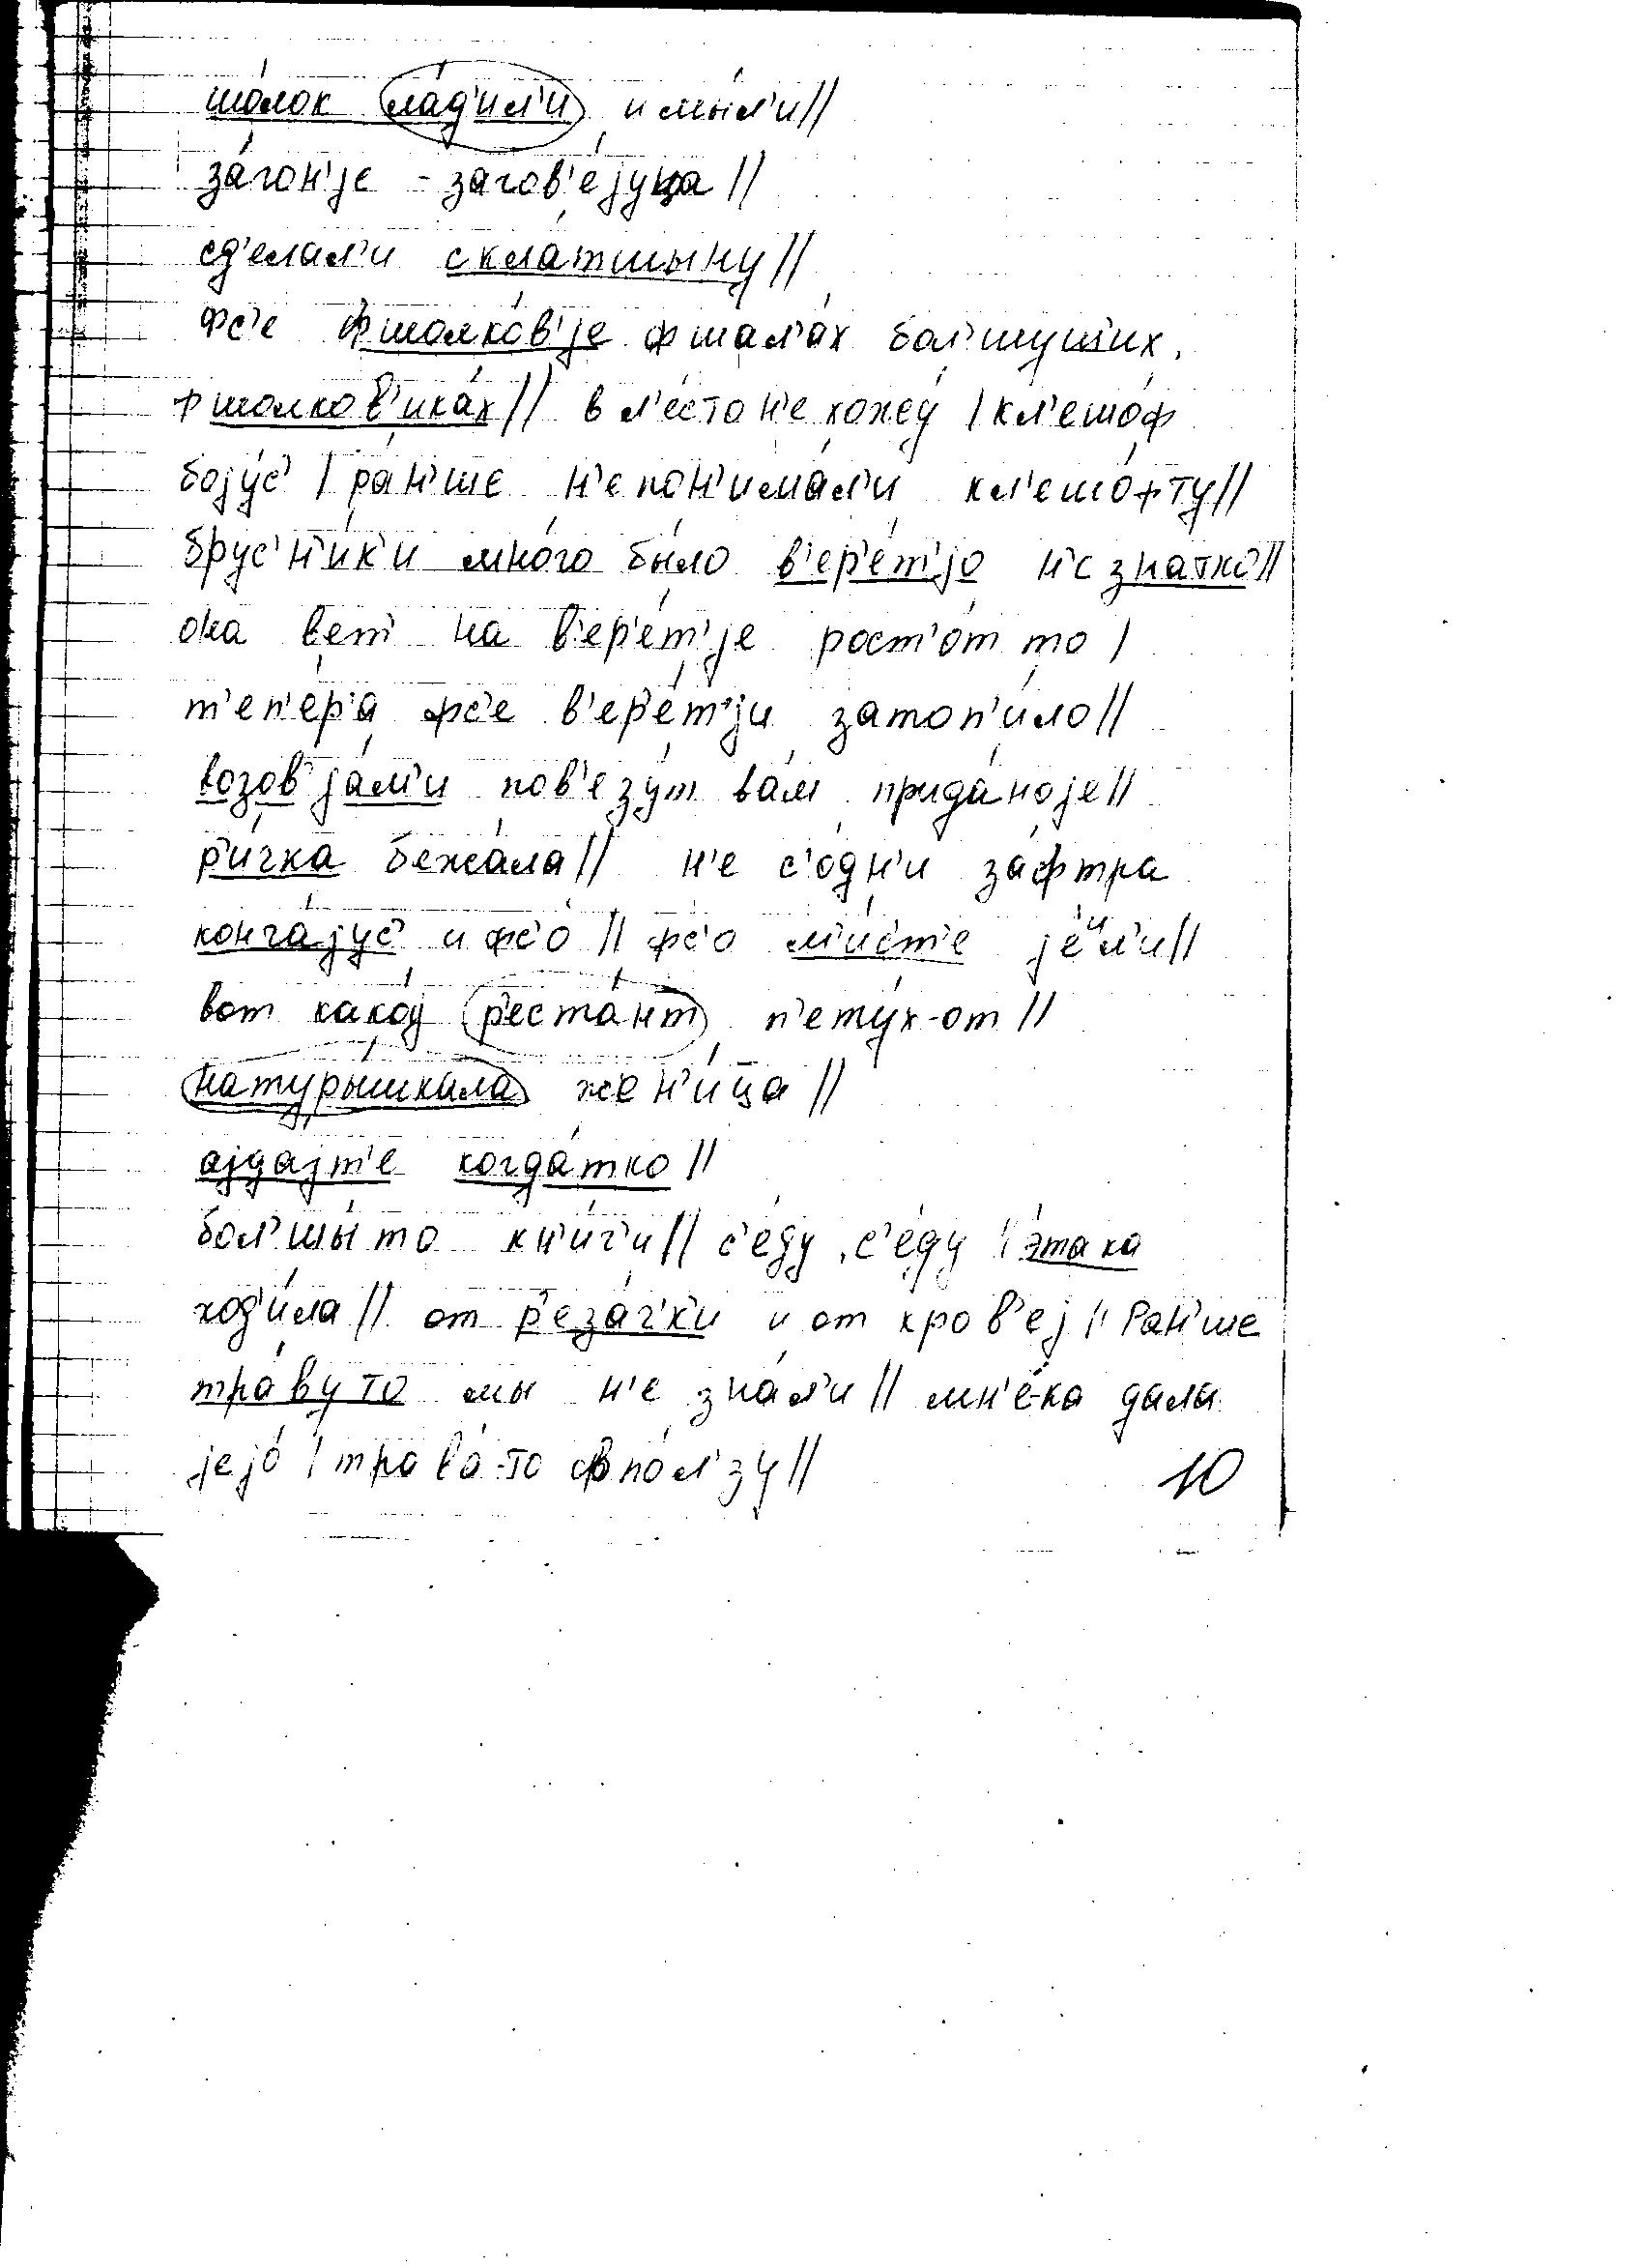 шо́лок ла́д'ил'и и мы́л'и//
за́гон'је - загов'е́јуца//
сд'елал'и скла́тшыну//
фс'е фшолко́в'је ф шал'а́х бол'шушых,
фшолков'ика́х// в л'е́сто н'е хожу́ / кл'ешо́ф
боју́с' / ра́н'ше н'е пон'има́л'и кл'ешо́ф ту//
брус'н'и́к'и мно́го бы́ло в'ер'е́т'јо н'е знатко́//
она вет' на в'ер'е́т'је рост'о́т то /
т'еп'е́р'а фс'е в'ер'е́т'ји затоп'и́ло//
возов'ја́м'и пов'езу́т ва́м прида́ноје//
р'и́чка бежа́ла// н'е с'о́дн'и за́фтра
конча́јус' и фс'о́ // фс'о м'и́с'т'е је́л'и//
вот како́ј р'еста́нт п'ету́х-от //
натуры́шкала жен'и́ца //
ајдајт'е когда́тко //
бол'шы́ то кн'и́г'и// с'е́ду, с'е́ду // э́така
ход'и́ла// от р'еза́ч'к'и и от кров'еј // Ран'ше
тра́ву то мы н'е зна́л'и// мн'е́-ка дала
јејо́ / трава́-то ф по́л'зу//
10